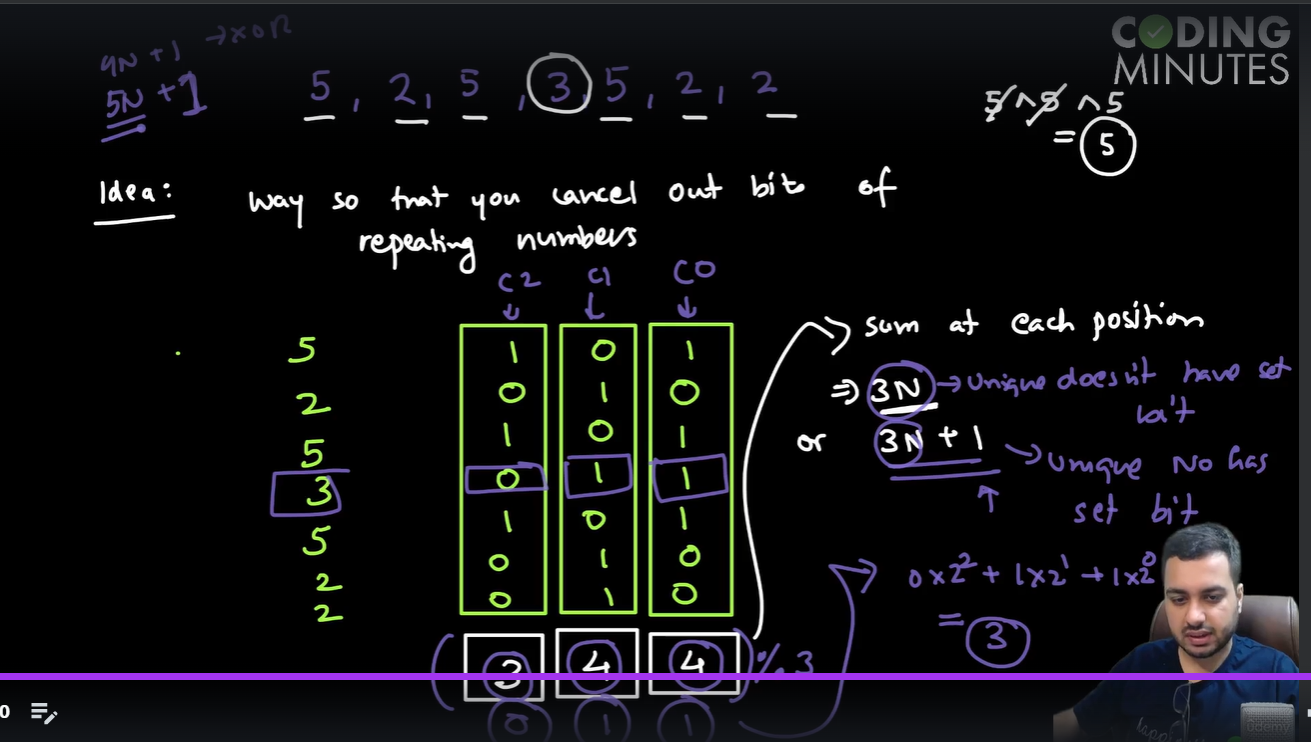 CODING
MINUTES
4N + 1 → XOR
5N + 1
5, 2, 5, 3, 5, 2, 2
5 ^ 5 ^ 5
= 5
Idea: way so that you cancel out bits of
repeating numbers
C2 C1 C0
5 1 0 1
2 0 1 0
5 1 0 1
3 0 1 1
5 1 0 1
2 0 1 0
2 0 1 0
( 3 4 4 ) % 3
0 1 1
sum at each position
⇒ 3N → Unique doesn't have set
bit
or 3N + 1 → Unique No has
set bit
0 x 2² + 1 x 2¹ + 1 x 2⁰
= 3
0
udemy